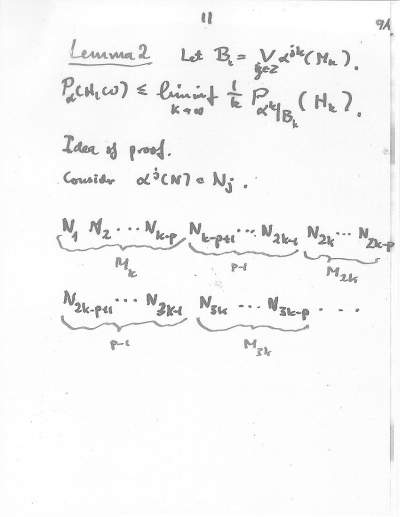 11
9A
Lemma 2 Let B_k = ⋁_{j∈Z} α^{jk}(M_k).
P_α(N, (ω)) ≤ lim inf_{k→∞} 1/k P_{α^k|B_k}(M_k).
Idea of proof.
Consider α^j(N) = N_j.
N_1 N_2 ... N_{k-p} N_{k-p+1} ... N_{2k-1} N_{2k} ... N_{2k-p}
M_k p-1 M_{2k}
N_{2k-p+1} ... N_{3k-1} N_{3k} ... N_{3k-p} . . .
p-1 M_{3k}